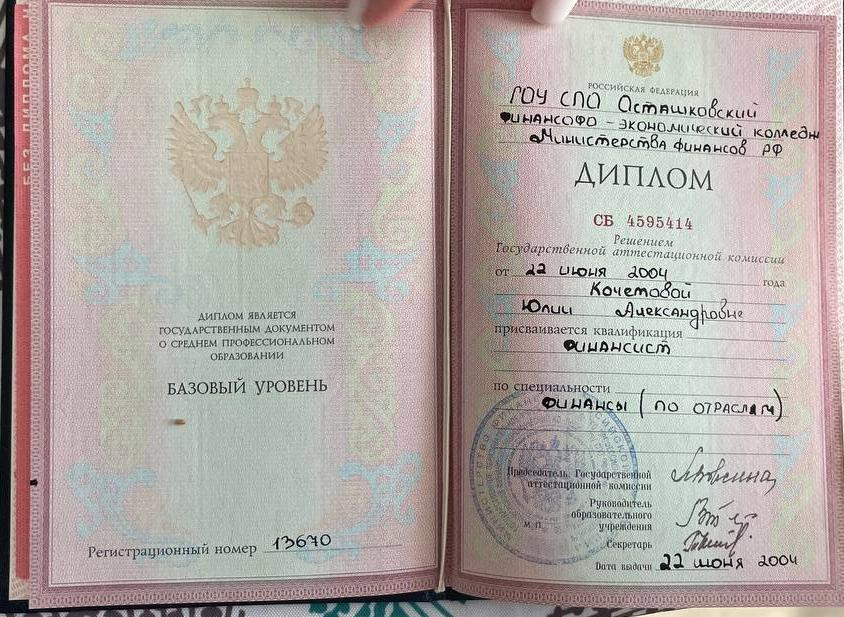 БЕЗ ДИПЛОМА Н
ДИПЛОМ ЯВЛЯЕТСЯ
ГОСУДАРСТВЕННЫМ ДОКУМЕНТОМ
О СРЕДНЕМ ПРОФЕССИОНАЛЬНОМ
ОБРАЗОВАНИИ
БАЗОВЫЙ УРОВЕНЬ
Регистрационный номер 13670
РОССИЙСКАЯ ФЕДЕРАЦИЯ
ГОУ СПО Осташковский
финансофо - экономический колледж
Министерства финансов РФ
ДИПЛОМ
СБ 4595414
Решением
Государственной аттестационной комиссии
от 22 июня 2004 года
Кочетовой
Юлии Александровне
присваивается квалификация
финансист
по специальности
финансы (по отраслям)
Председатель Государственной
аттестационной комиссии
Руководитель
образовательного
учреждения
М. П.
Секретарь
Дата выдачи 22 июня 2004